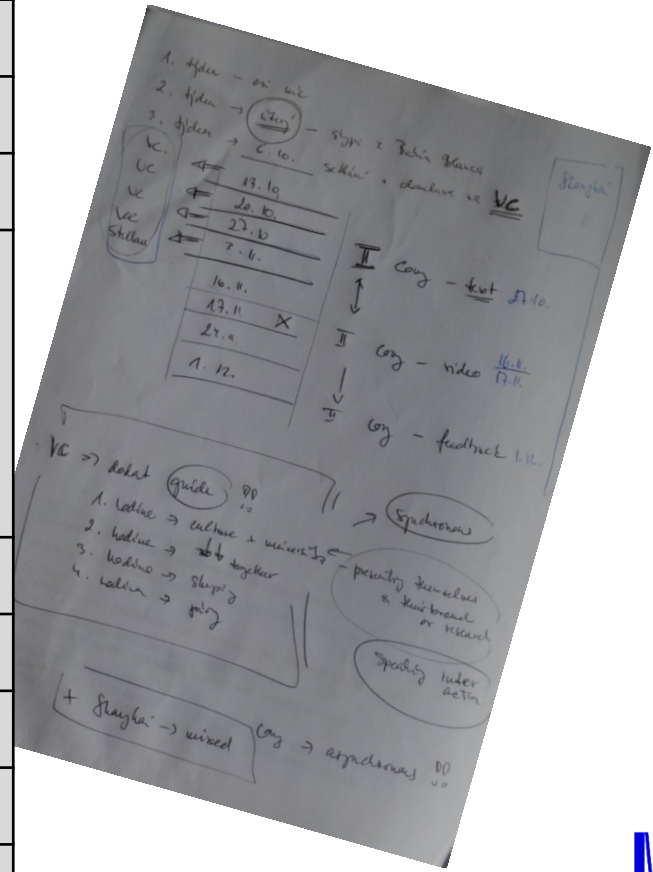 1. týden – ani nic
2. týden → úterý – skype z Bahía Blanca
3. týden → 6. 10. setkání + domluva na VC
Shanghai
VC
VC ⇐ 13. 10.
VC ⇐ 20. 10.
VC ⇐ 27. 10
Stellan ⇐ 3. 11.
10. 11.
17. 11 X
24. 11.
1. 12.
II Coby – text 27. 10.
II Coby – video 16. 11. 17. 11.
II Coby – feedback 1. 12.
VC ⇒ dodat guide !!
1. hodina → culture + university
2. hodina → together
3. hodina → skupiny
4. hodina → páry
→ Synchronous
– presenting themselves
& their brand
or research
Speaking inter
action
+ Shanghai → mixed
→ asynchronous !!